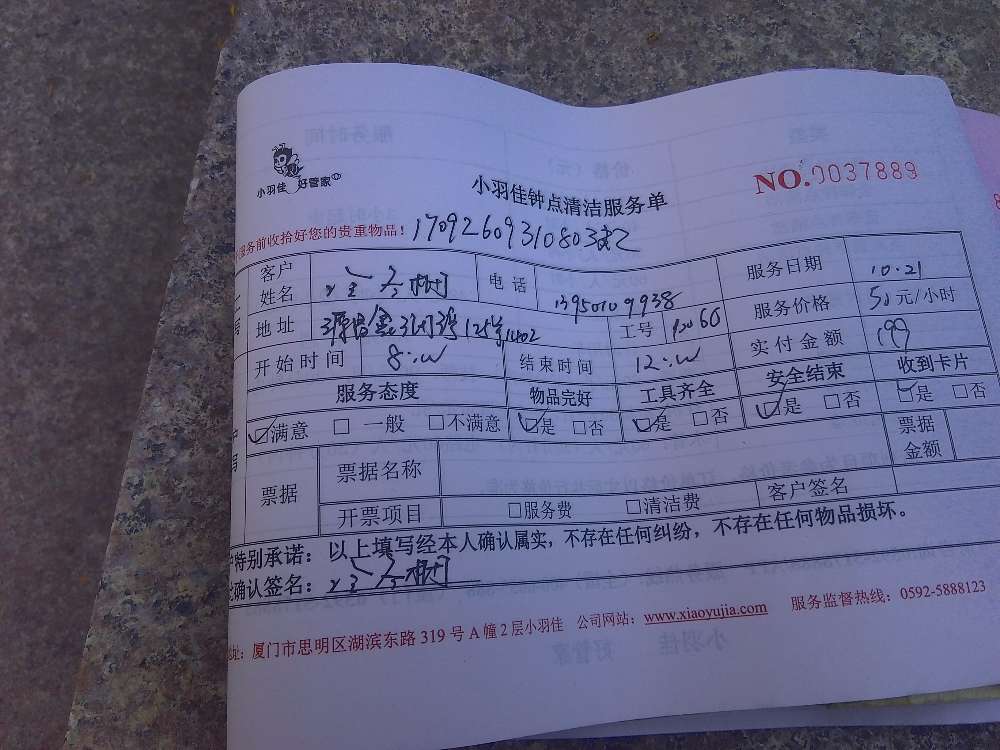 小羽佳 好管家
小羽佳钟点清洁服务单
NO.0037889
服务前收拾好您的贵重物品！ 17092609310803
客户姓名 电话 13950109938 服务日期 10.21
地址 125 1402 工号 服务价格 50元/小时
开始时间 8:00 结束时间 12:00 实付金额 199
服务态度 物品完好 工具齐全 安全结束 收到卡片
☑满意 □ 一般 □不满意 ☑是 □否 ☑是 □否 ☑是 □否 ☑是 □否
票据 票据名称 票据金额
开票项目 □服务费 □清洁费 客户签名
特别承诺：以上填写经本人确认属实，不存在任何纠纷，不存在任何物品损坏。
确认签名：
厦门市思明区湖滨东路 319 号 A 幢 2 层小羽佳 公司网站：www.xiaoyujia.com 服务监督热线：0592-5888123